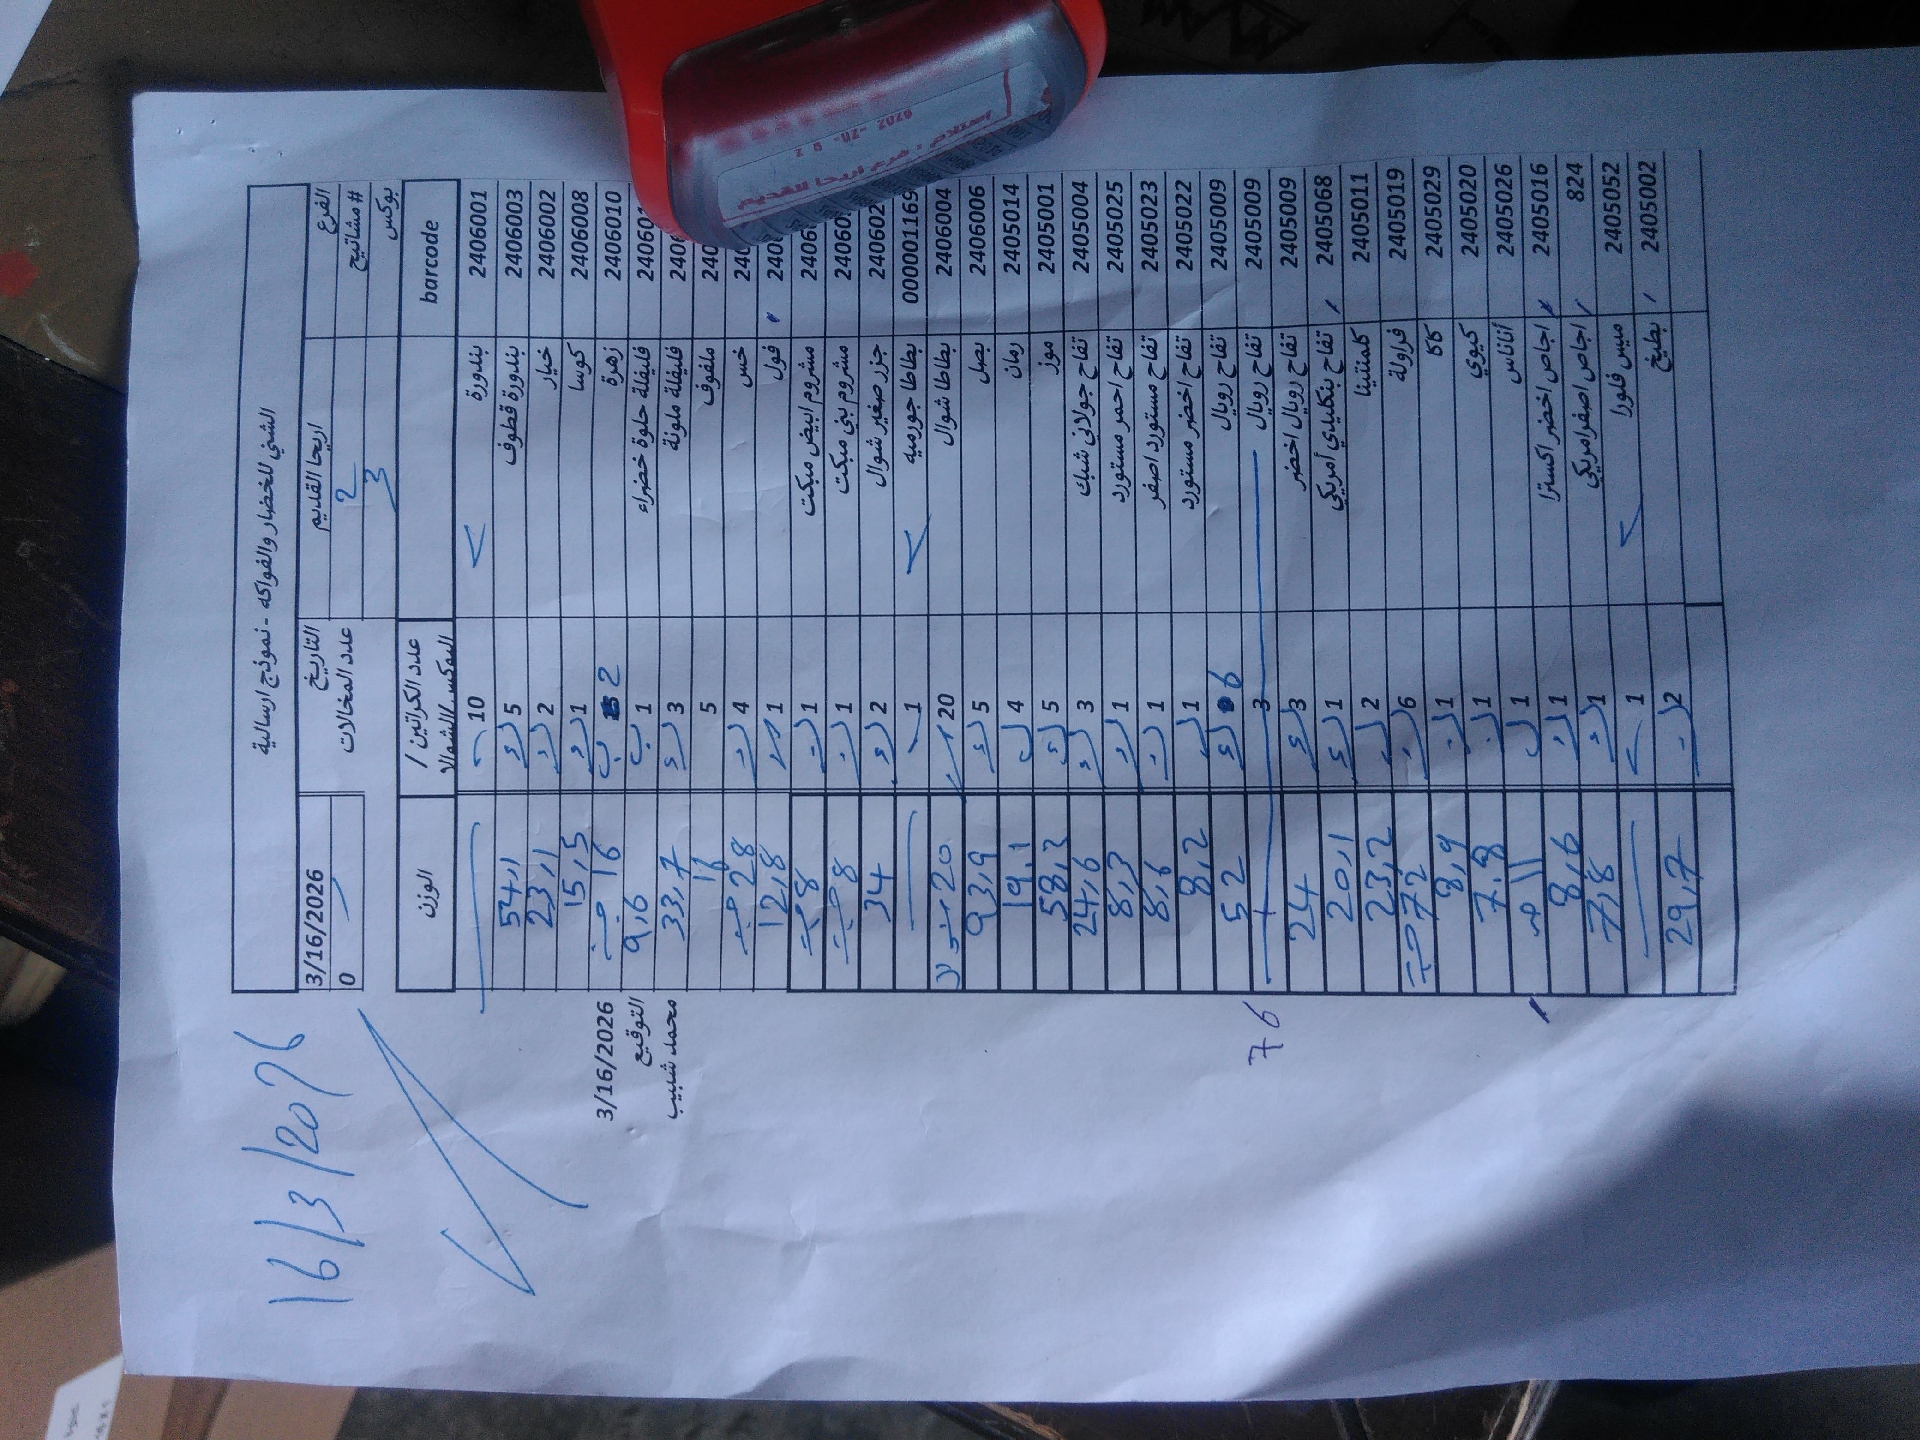 16/3/2026
الشني للخضار والفواكه - نموذج ارسالية
الفرع اريحا القديم التاريخ 3/16/2026
# مشاتيح 2 عدد المخالات 0
بوكس 3
barcode عدد الكراتين / البوكس/الشوال الوزن
2406001 بندورة 10
2406003 بندورة قطوف 5 54,1
2406002 خيار 2 23,1
2406008 كوسا 1 15,5
2406010 زهرة 2 16
فليفلة حلوة خضراء 1 9,6
فليفلة ملونة 3 33,7
ملفوف 5 16
خس 4 28
فول 1 12,8
مشروم ابيض مبكت 1 8
مشروم بني مبكت 1 8
جزر صغير شوال 2 34
00000116 بطاطا حورميه 1
2406004 بطاطا شوال 20 20
2406006 بصل 5 93,9
2405014 رمان 4 19,1
2405001 موز 5 58,3
2405004 تفاح جولاني شبك 3 24,6
2405025 تفاح احمر مستورد 1 8,3
2405023 تفاح مستورد اصفر 1 8,6
2405022 تفاح اخضر مستورد 1 8,2
2405009 تفاح رويال 6 52
2405009 تفاح رويال 3
76
2405009 تفاح رويال اخضر 3 24
2405068 تفاح بنكليدي أمريكي 1 20,1
2405011 كلمنتينا 2 23,2
2405019 فراولة 6 72
2405029 كاكا 1 8,9
2405020 كيوي 1 7.8
2405026 أناناس 1 11
2405016 اجاص اخضر اكسترا 1 8,6
824 اجاص اصفر امريكي 1 7,8
2405052 ميس فلورا 1
2405002 بطيخ 2 29,7
3/16/2026
التوقيع
محمد شبيب